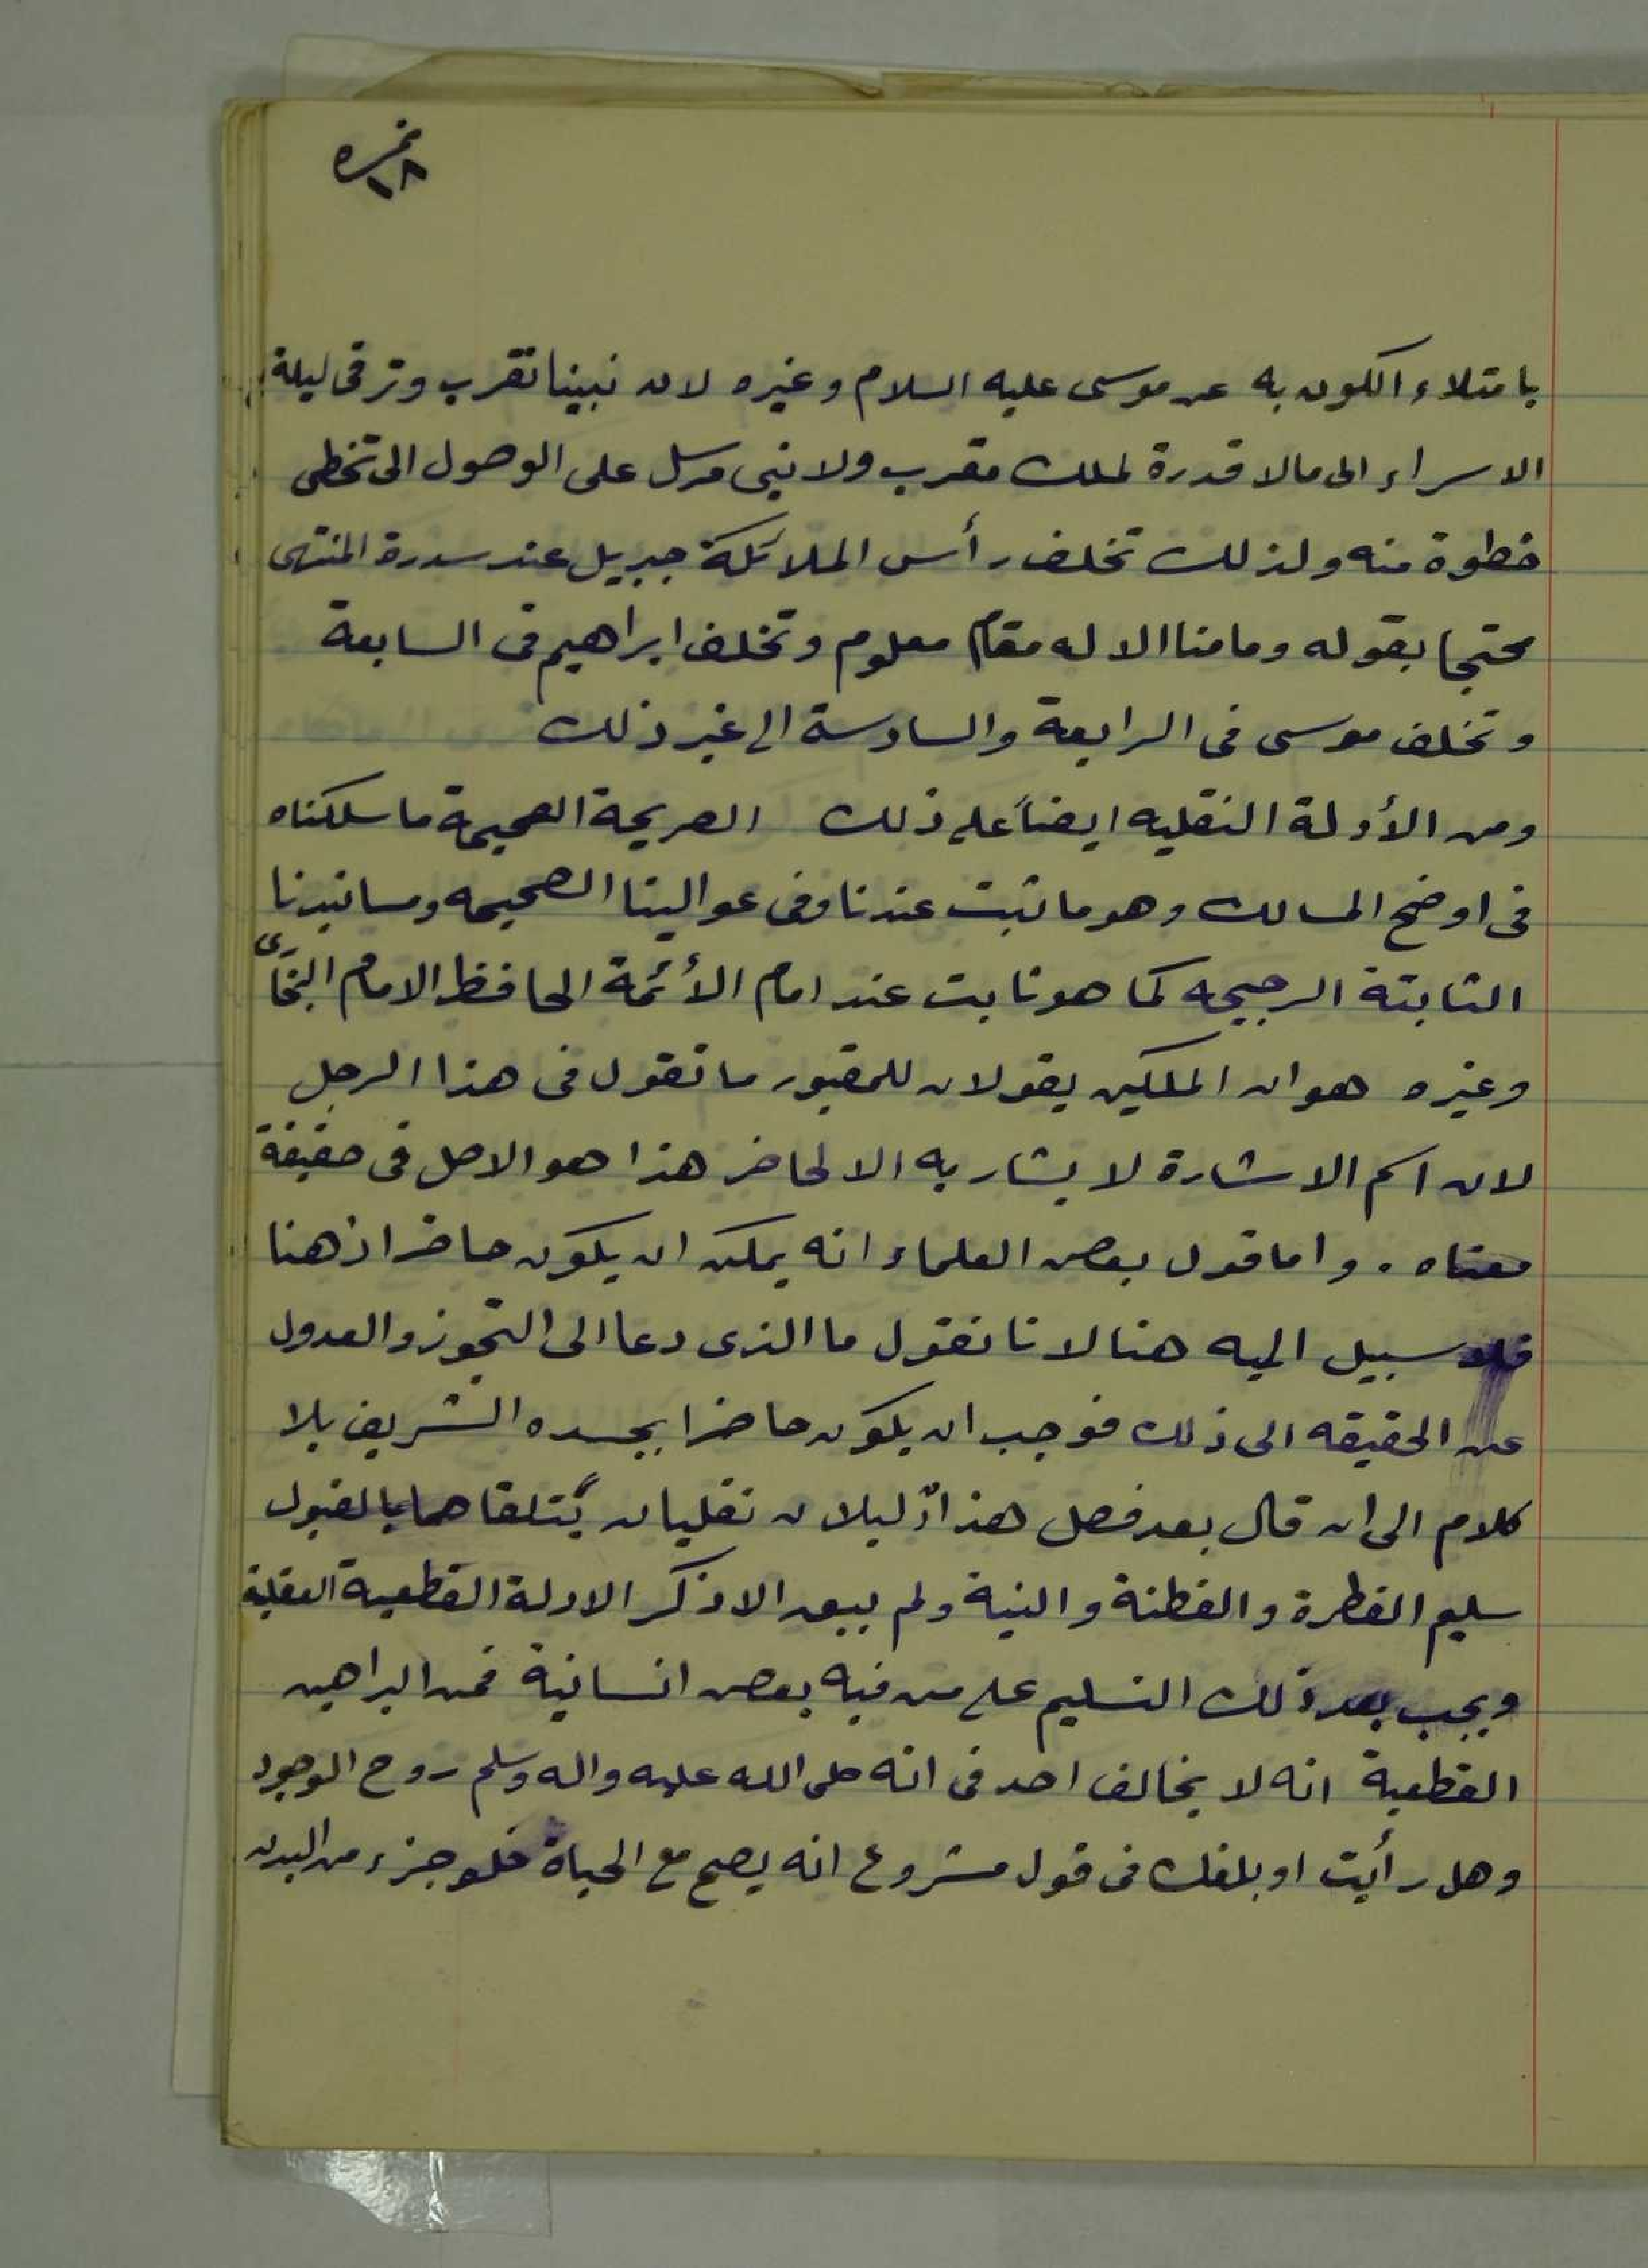 نمره
١٨
بامتلاء الكون به عن موسى عليه السلام وغيره لان نبينا تقرب وترقى ليلة
الاسراء الى مالا قدرة لملك مقرب ولا نبى مرسل على الوصول الى تخطى
خطوة منه ولذلك تخلف رأس الملائكة جبريل عند سدرة المنتهى
محتجا بقوله ومامنا الا له مقام معلوم وتخلف ابراهيم فى السابعة
وتخلف موسى فى الرابعة والسادسة الى غير ذلك
ومن الأدلة النقليه ايضاً على ذلك الصريحة الصحيحة ما سلكناه
فى اوضح المسالك وهو ما ثبت عندنا وفى عوالينا الصحيحه ومسانيدنا
الثابتة الرجيحه كما هو ثابت عند امام الأئمة الحافظ الامام البخارى
وغيره هو ان الملكين يقولان للمقبور ما تقول فى هذا الرجل
لان اسم الاشارة لا يشار به الا لحاضر هذا هو الاصل فى حقيقة
معناه . واما قول بعض العلماء انه يمكن ان يكون حاضرا ذهنا
فلا سبيل اليه هنا لانا نقول ما الذى دعا الى التجوز والعدول
عن الحقيقه الى ذلك فوجب ان يكون حاضرا بجسده الشريف بلا
كلام الى ان قال بعد فصل هذا دليلان نقليان يتلقاهما بالقبول
سليم الفطرة والفطنة والنية ولم يبق الا ذكر الادلة القطعية العقلية
ويجب بعد ذلك التسليم على من فيه بعض انسانية فمن البراهين
القطعية انه لا يخالف احد فى انه صلى الله عليه واله وسلم روح الوجود
وهل رأيت او بلغك فى قول مشروع انه يصح مع الحياة خلو جزء من البدن